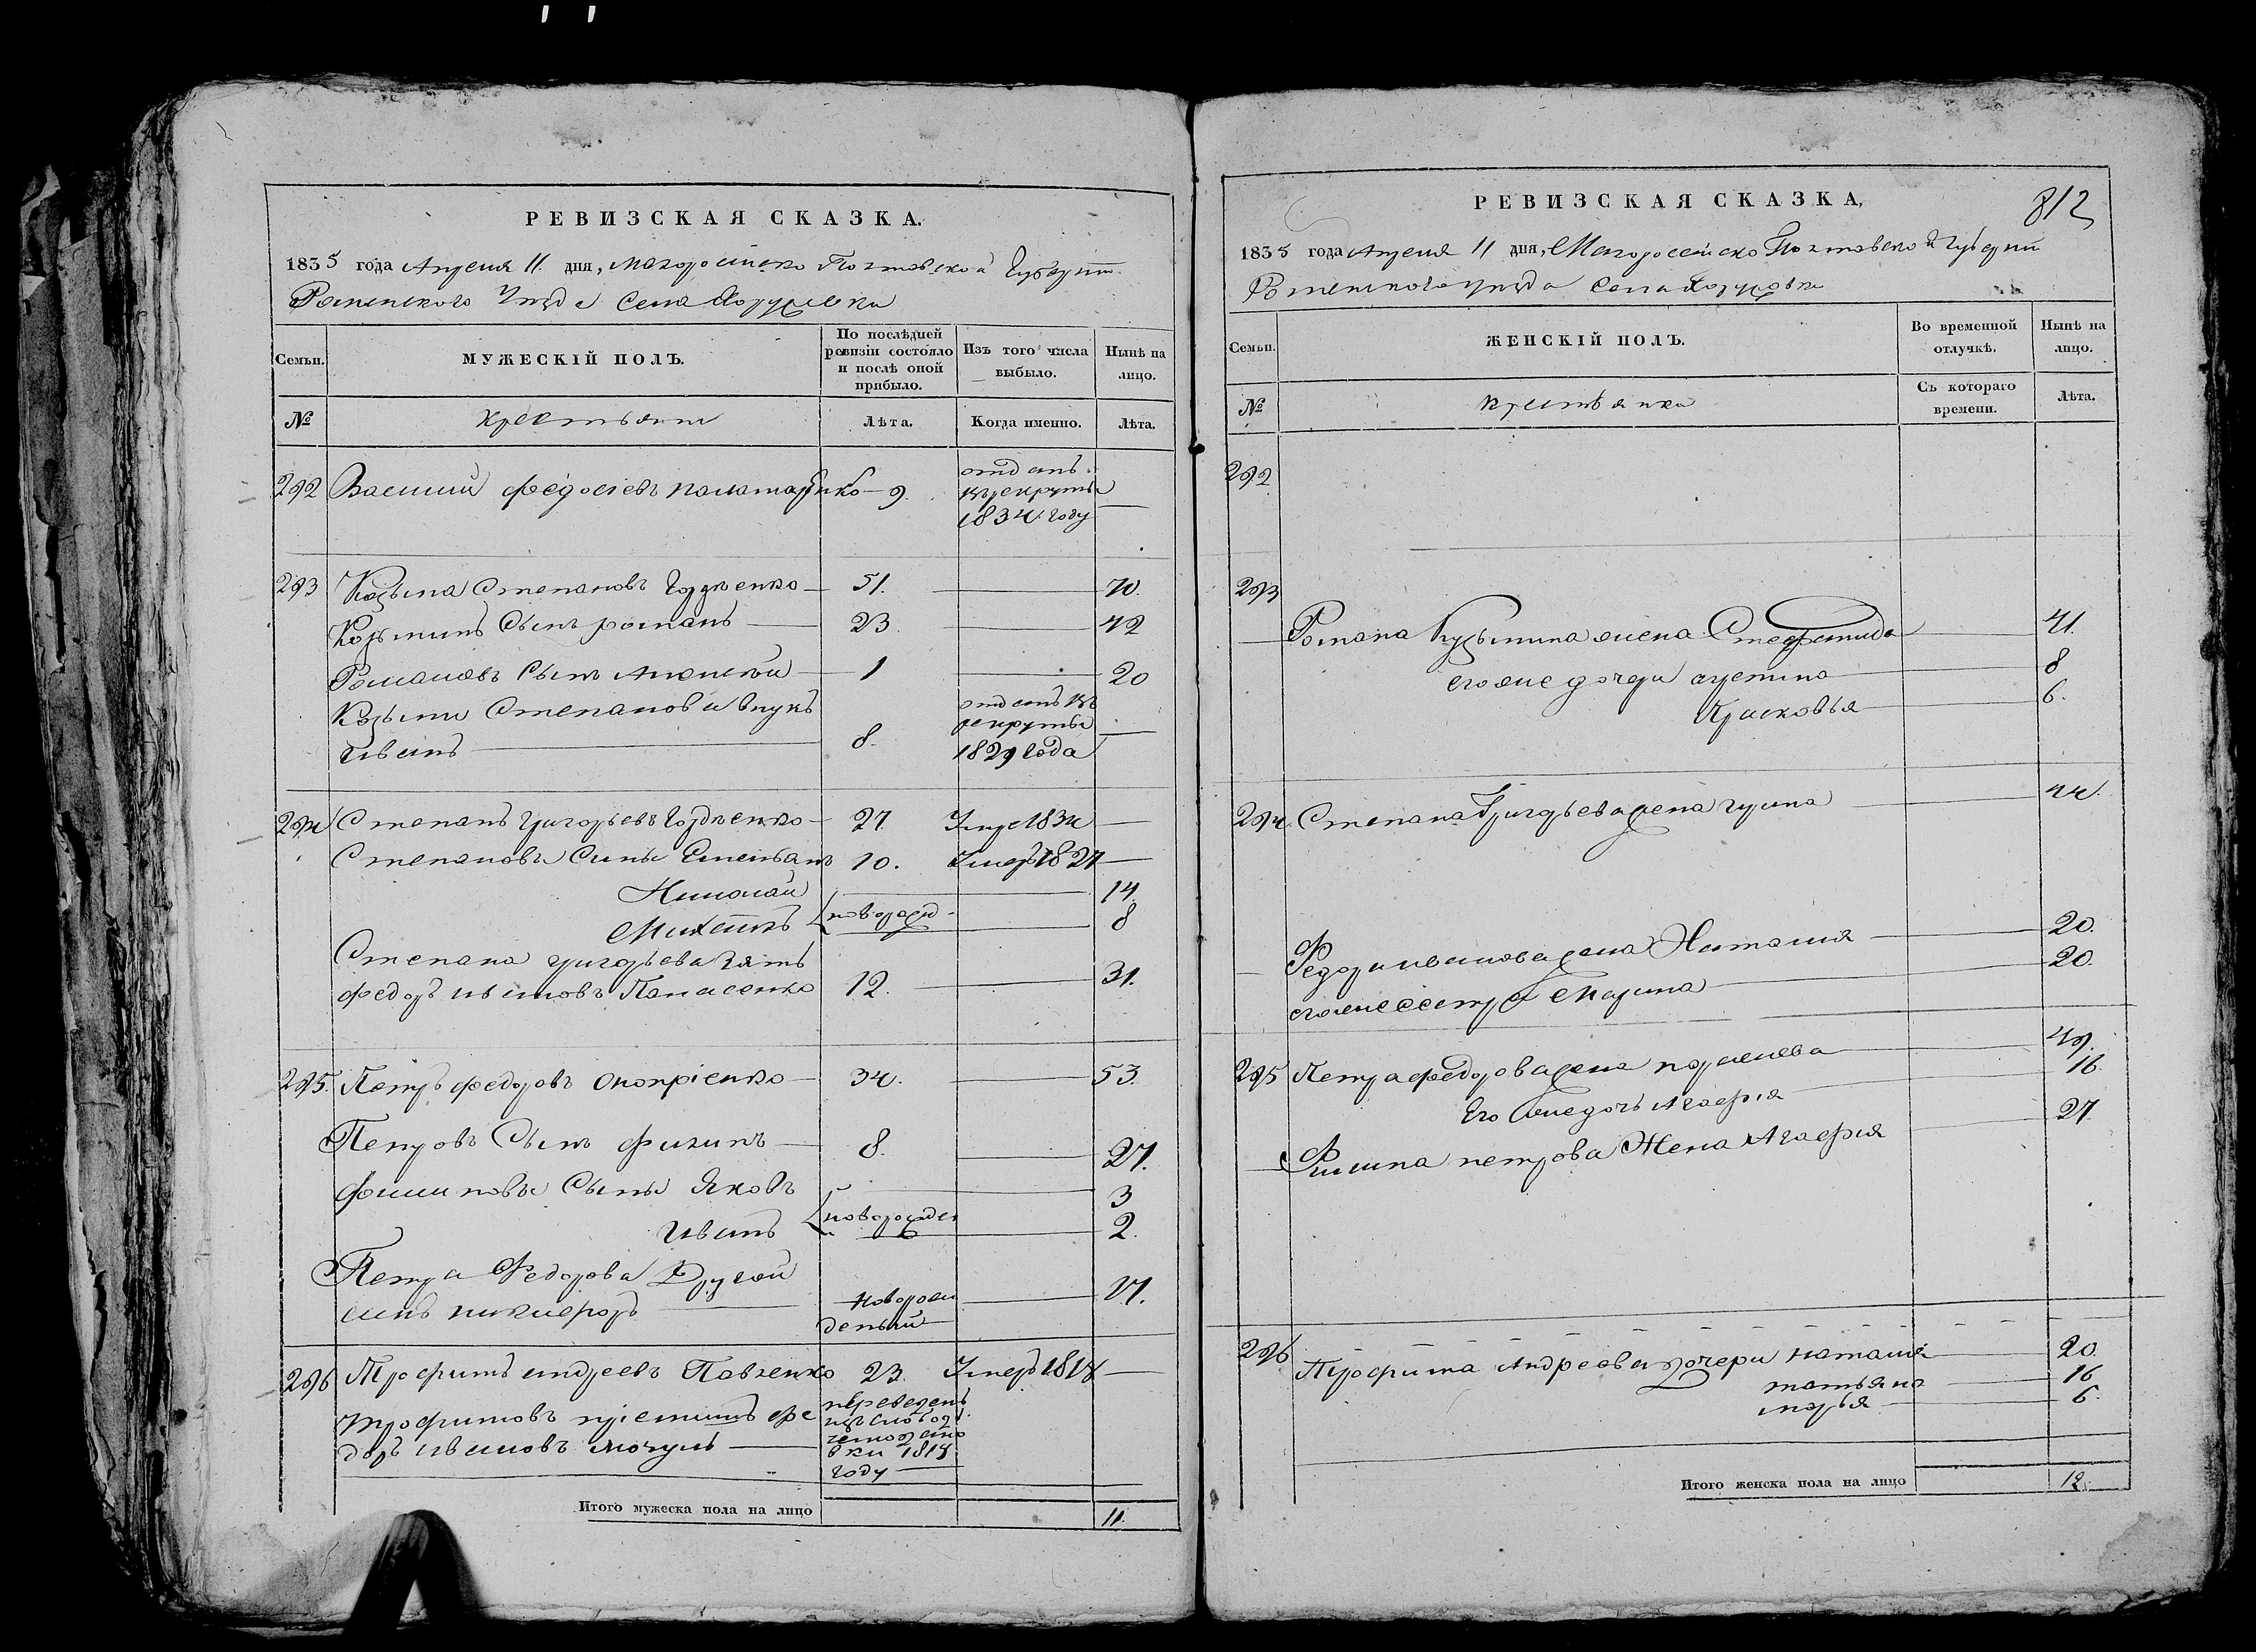 РЕВИЗСКАЯ СКАЗКА.
1835 года Апреля 11 дня, Малоросійско Полтавской Губерніи
Роменского Уезда Села
Семьи.
МУЖЕСКІЙ ПОЛЪ.
По послѣдней ревизіи состояло и послѣ оной прибыло.
Изъ того числа выбыло.
Нынѣ на лицо.
№
Крестьяни
Лѣта.
Когда именно.
Лѣта.
292 Василий Федосіевъ Паламаренко 9. отданъ в рекруты 1834 году
293 Козьма Степановъ 51. 70.
Козьминъ Сынъ романъ 23. 42
Романовъ Сынъ Алексѣй 1 20
Козьми Степанова внукъ
Иванъ 8. отданъ въ рекруты 1829 года
294 Степанъ Григорьевъ 27. Умре 1834
Степановы Сины Емельянъ 10. Умеръ 1827
Николай 14.
Михаилъ новорожд 8
Степана григорьева зять
Федоръ ивановъ Панасенко 12. 31.
295. Петръ федоровъ Оноприенко 34. 53.
Петровъ Сынъ филипъ 8. 27.
филиповы Сыны Яковъ 3
Иванъ новорожден 2.
Петра Федорова Другой
синъ никифоръ новорожденый 17.
296 Трофимъ андреевъ Павленко 23. Умеръ 1818
Трофимовъ приемишъ фе
доръ ивановъ переведенъ
1818
году
Итого мужеска пола на лицо 11.
РЕВИЗСКАЯ СКАЗКА,
812
1835 года Апреля 11 дня, Малоросейско Полтавской Губерніи
Роменского уезда села
Семьи.
ЖЕНСКІЙ ПОЛЪ.
Во временной отлучкѣ.
Нынѣ на лицо.
№
Крестьянки
Съ котораго времени.
Лѣта.
292
293
Романа Кузьмина жена 41.
его же дочери 8
Прасковья 6.
294. Степана Григорьева жена 44.
Федора иванова жена Наталия 20.
его же сестра Марина 20.
295 Петра федорова жена 49.
Его же дочь Агафія 16.
Филипа петрова Жена Агафия 27
296 Трофима Андреева дочери наталия 20.
татьяна 16
марья 6.
Итого женска пола на лицо 12.